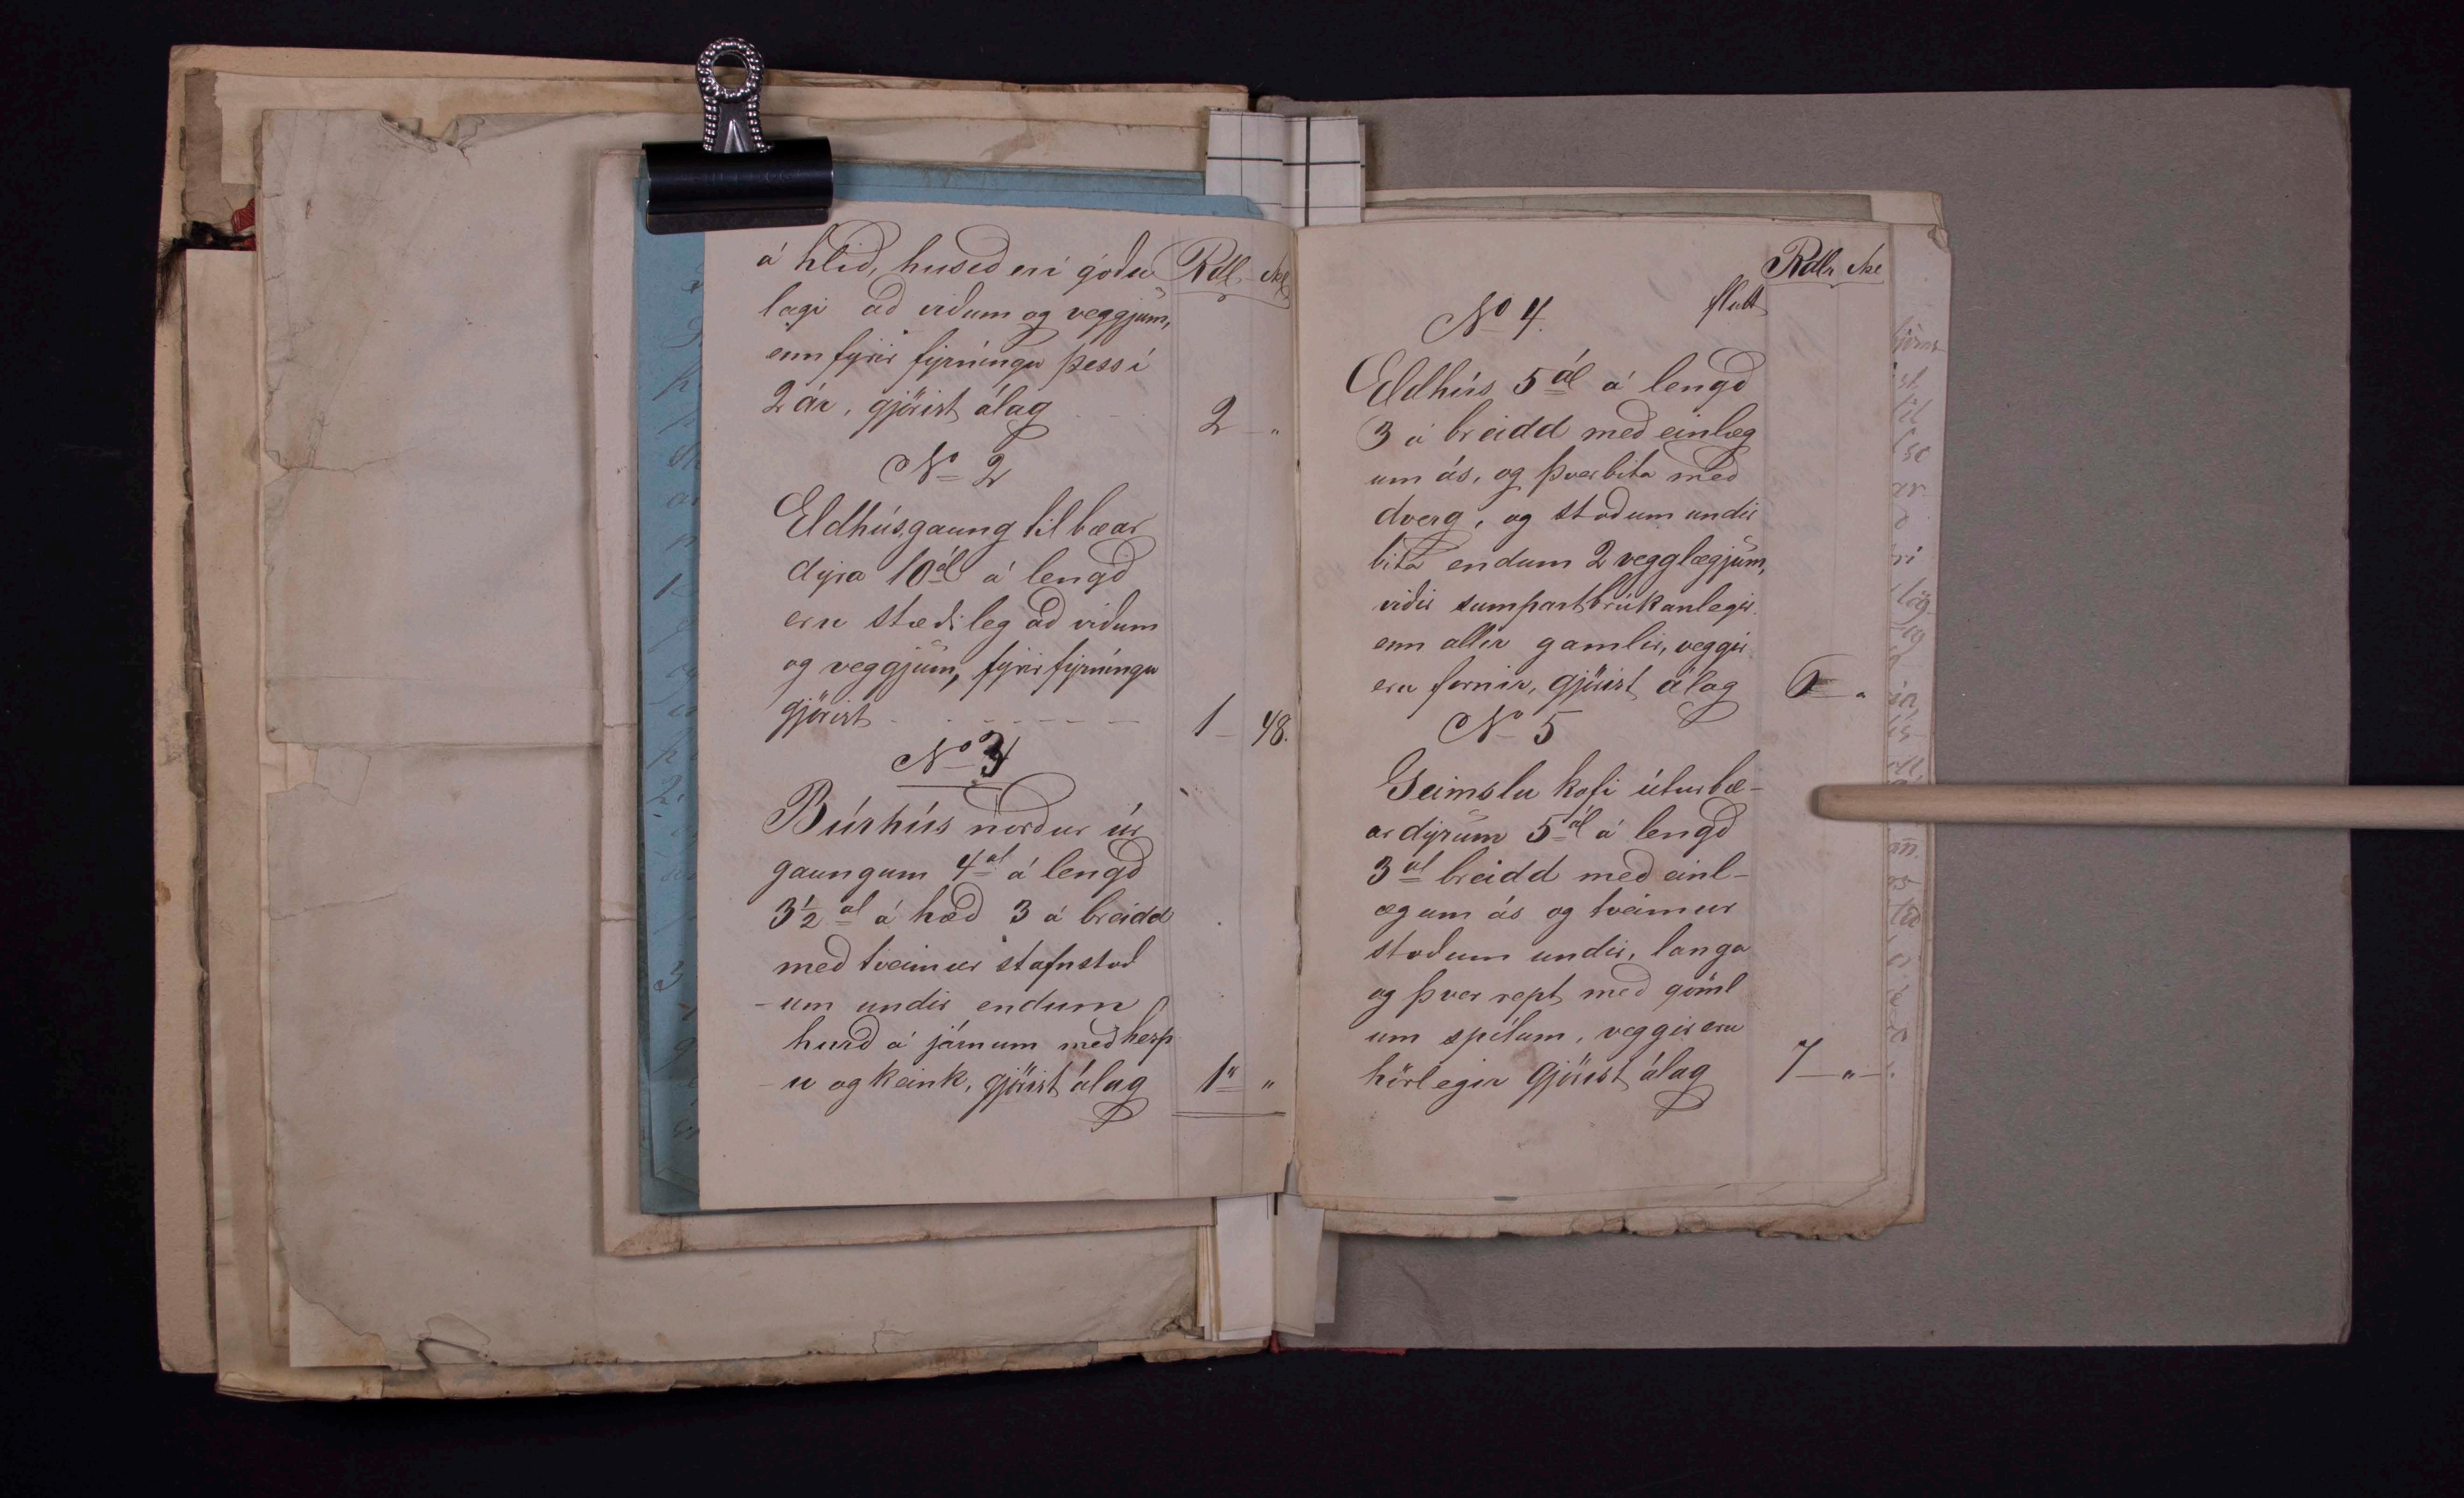 á hlið, husið er í góðu Rdl. sk
lagi að viðum og veggjum,
enn fyrir fyrníngu þess í
2 ár, gjörist álag 2 — "
No 2
Eldhúsgaung til bæar
dyra 10 ál á lengð
eru stæðileg að viðum
og veggjum, fyrir fyrníngu
gjörist - - - - - - 1 — 48.
No 3
Búrhús norður úr
gaungum 4 al á lengð
3½ al á hæð 3 á breidd
með tveimur stafnstoð
- um undir endum
hurð á járnum með hesp
- u og keink, gjörist álag 1 " "
Rdlr sk
No 4. flutt
Eldhús 5 ál á lengð
3 á breidd með einlæg
um ás, og þverbita með
dverg, og stoðum undir
bita endum 2 vegglægjum,
viðir sumpart brúkanlegir
enn allir gamlir, veggir
eru fornir, gjörist álag 6 — "
No 5
Geimslu kofi úturbæ-
ardyrum 5 ál á lengð
3 al breidd með einl-
ægum ás og tveimur
stoðum undir, langa
og þver rept með göml
um spílum, veggir eru
hörlegir gjörist álag 7 — " —